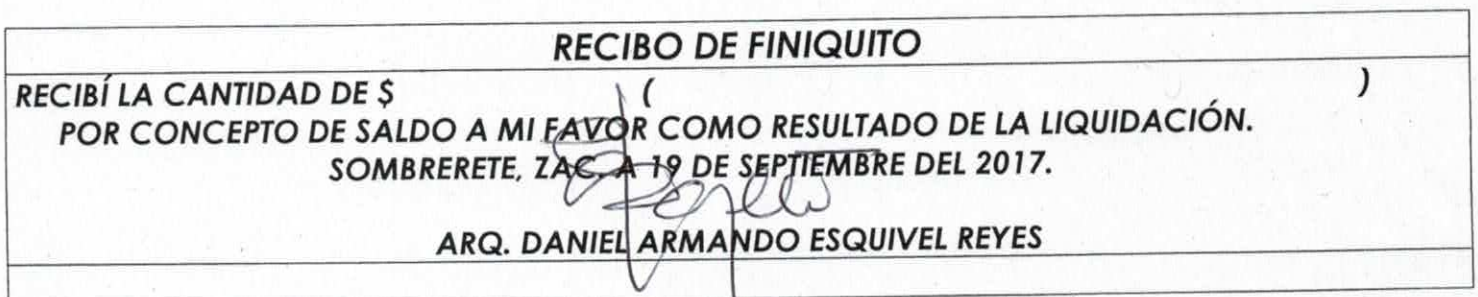 RECIBO DE FINIQUITO
RECIBÍ LA CANTIDAD DE $ ( )
POR CONCEPTO DE SALDO A MI FAVOR COMO RESULTADO DE LA LIQUIDACIÓN.
SOMBRERETE, ZAC. A 19 DE SEPTIEMBRE DEL 2017.
ARQ. DANIEL ARMANDO ESQUIVEL REYES